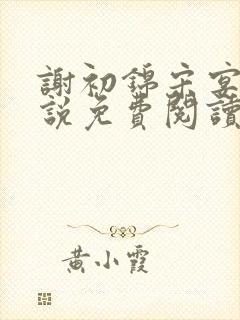 謝初錦宋宴
說免費閱讀
黃小霞